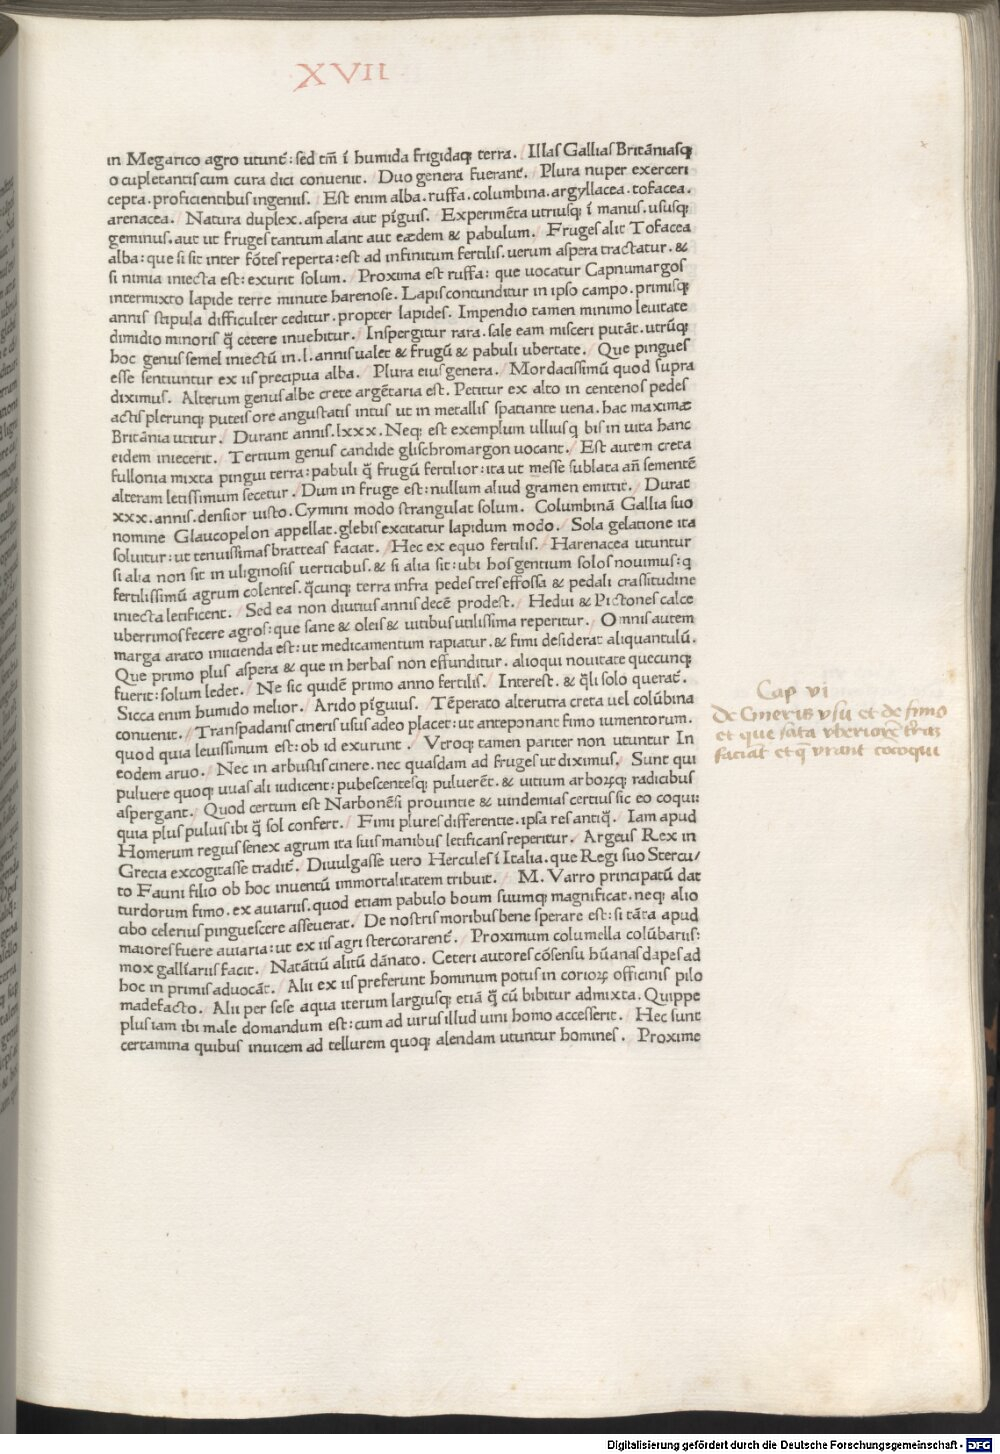 XVII
in Megarico agro utunt̃: sed tm̃ ĩ humida frigidaq; terra. Illas Gallias Britãniasq;
ocupletantis cum cura dici conuenit. Duo genera fuerant̃. Plura nuper exerceri
cepta. proficientibus ingeniis. Est enim alba. ruffa. columbina. argyllacea. tofacea.
arenacea. Natura duplex. aspera aut pĩguis. Experimẽta utriusq; ĩ manus. ususq;
geminus. aut ut fruges tantum alant aut eædem & pabulum. Fruges alit Tofacea
alba: que si sit inter fõtes reperta: est ad infinitum fertilis. uerum aspera tractatur. &
si nimia iniecta est: exurit solum. Proxima est ruffa: que uocatur Capnumargos
intermixto lapide terre minute harenose. Lapis contunditur in ipso campo. primisq;
annis stipula difficulter ceditur. propter lapides. Impendio tamen minimo leuitate
dimidio minoris q̃ cetere inuehitur. Inspergitur rara. sale eam misceri putãt. utrũq;
hoc genus semel iniectũ in .l. annis ualet & frugũ & pabuli ubertate. Que pingues
esse sentiuntur ex iis precipua alba. Plura eius genera. Mordacissimũ quod supra
diximus. Alterum genus albe crete argẽtaria est. Petitur ex alto in centenos pedes
actis plerunq; puteis ore angustatis intus ut in metallis spatiante uena. hac maximæ
Britãnia utitur. Durant annis. lxxx. Neq; est exemplum ullius q bis in uita hanc
eidem iniecerit. Tertium genus candide glischromargon uocant. Est autem creta
fullonia mixta pingui terra: pabuli q̃ frugũ fertilior: ita ut messe sublata añ sementẽ
alteram letissimum secetur. Dum in fruge est: nullum aliud gramen emittit. Durat
xxx. annis. densior uisto. Cymini modo strangulat solum. Columbinã Gallia suo
nomine Glaucopelon appellat. glebis excitatur lapidum modo. Sola gelatione ita
soluitur: ut tenuissimas bratteas faciat. Hec ex equo fertilis. Harenacea utuntur
si alia non sit in uliginosis uerticibus. & si alia sit: ubi hos gentium solos nouimus: q
fertilissimũ agrum colentes. q̃cunq; terra infra pedes tres effossa & pedali crassitudine
iniecta letificent. Sed ea non diutius annis decẽ prodest. Hedui & Pictones calce
uberrimos fecere agros: que sane & oleis & uitibus utilissima reperitur. Omnis autem
marga arato iniicienda est: ut medicamentum rapiatur. & fimi desiderat aliquantulũ.
Que primo plus aspera & que in herbas non effunditur. alioqui nouitate quecunq;
fuerit: solum ledet. Ne sic quidẽ primo anno fertilis. Interest. & q̃li solo querat̃.
Sicca enim humido melior. Arido pĩguius. Tẽperato alterutra creta uel colũbina
conuenit. Transpadanis cineris usus adeo placet: ut anteponant fimo iumentorum.
quod quia leuissimum est: ob id exurunt. Vtroq; tamen pariter non utuntur In
eodem aruo. Nec in arbustis cinere. nec quasdam ad fruges ut diximus. Sunt qui
puluere quoq; uuas ali iudicent: pubescentesq; puluerẽt. & uitium arborꝝq; radicibus
aspergant. Quod certum est Narbonẽsi prouintie & uindemias certius sic eo coqui:
quia plus puluis ibi q̃ sol confert. Fimi plures differentie. ipsa res antiq̃. Iam apud
Homerum regius senex agrum ita suis manibus letificans reperitur. Argeus Rex in
Grecia excogitasse tradit̃. Diuulgasse uero Hercules ĩ Italia. que Regi suo Stercu/
to Fauni filio ob hoc inuentũ immortalitatem tribuit. M. Varro principatũ dat
turdorum fimo. ex auiariis. quod etiam pabulo boum suumq; magnificat. neq; alio
cibo celerius pinguescere asseuerat. De nostris moribus bene sperare est: si tãta apud
maiores fuere auiaria: ut ex iis agri stercorarent̃. Proximum columella colũbariis:
mox gallĩariis facit. Natãtiũ alitũ dãnato. Ceteri autores cõsensu hũanas dapes ad
hoc in primis aduocãt. Alii ex iis preferunt hominum potus in coriorꝝ officinis pilo
madefacto. Alii per sese aqua iterum largiusq; etiã q̃ cũ bibitur admixta. Quippe
plus iam ibi male domandum est: cum ad uirus illud uini homo accesserit. Hec sunt
certamina quibus inuicem ad tellurem quoq; alendam utuntur homines. Proxime
Cap vi
De Cineris vsu et de fimo
et que sata vberiorẽ
faciãt et q̃ vrant
Digitalisierung gefördert durch die Deutsche Forschungsgemeinschaft - DFG